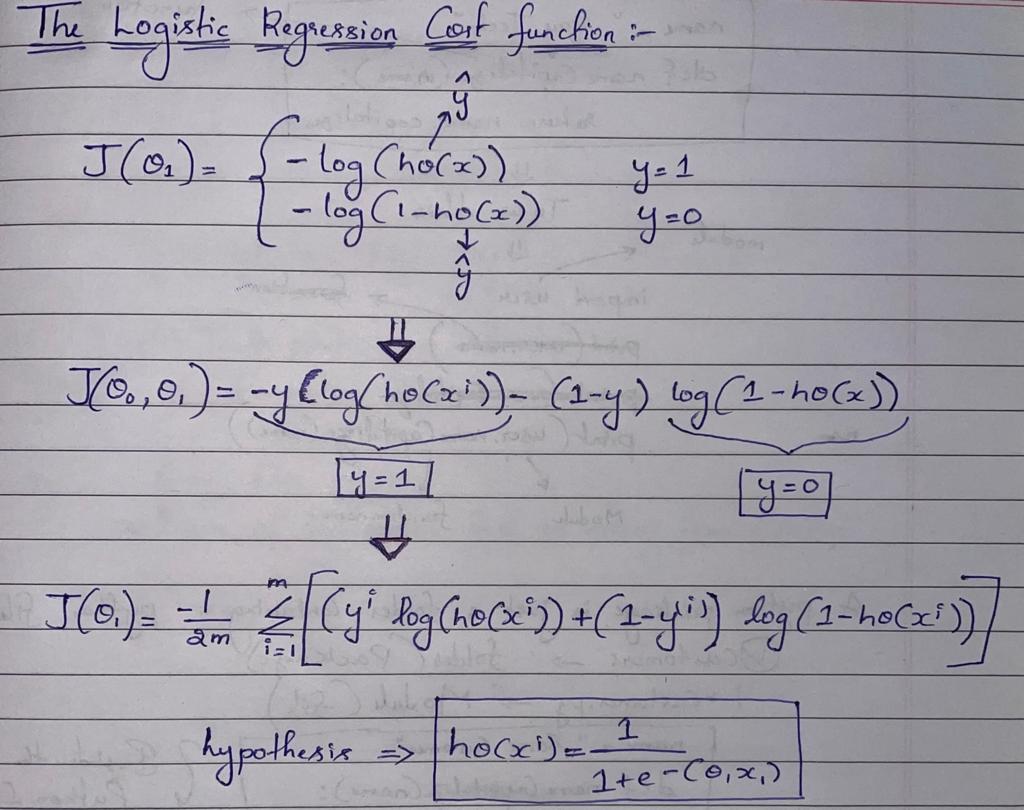 The Logistic Regression Cost function :-
ŷ
J(θ₁) = { -log(hθ(x)) y=1
-log(1-hθ(x)) y=0
ŷ
⇓
J(θ₀,θ₁) = -y(log(hθ(xⁱ)) - (1-y) log(1-hθ(x))
y=1 y=0
⇓
J(θ₁) = -1/2m Σ_{i=1}^{m} [(yⁱ log(hθ(xⁱ)) + (1-yⁱ) log(1-hθ(xⁱ))]
hypothesis => hθ(xⁱ) = 1/1+e-(θ₁x₁)